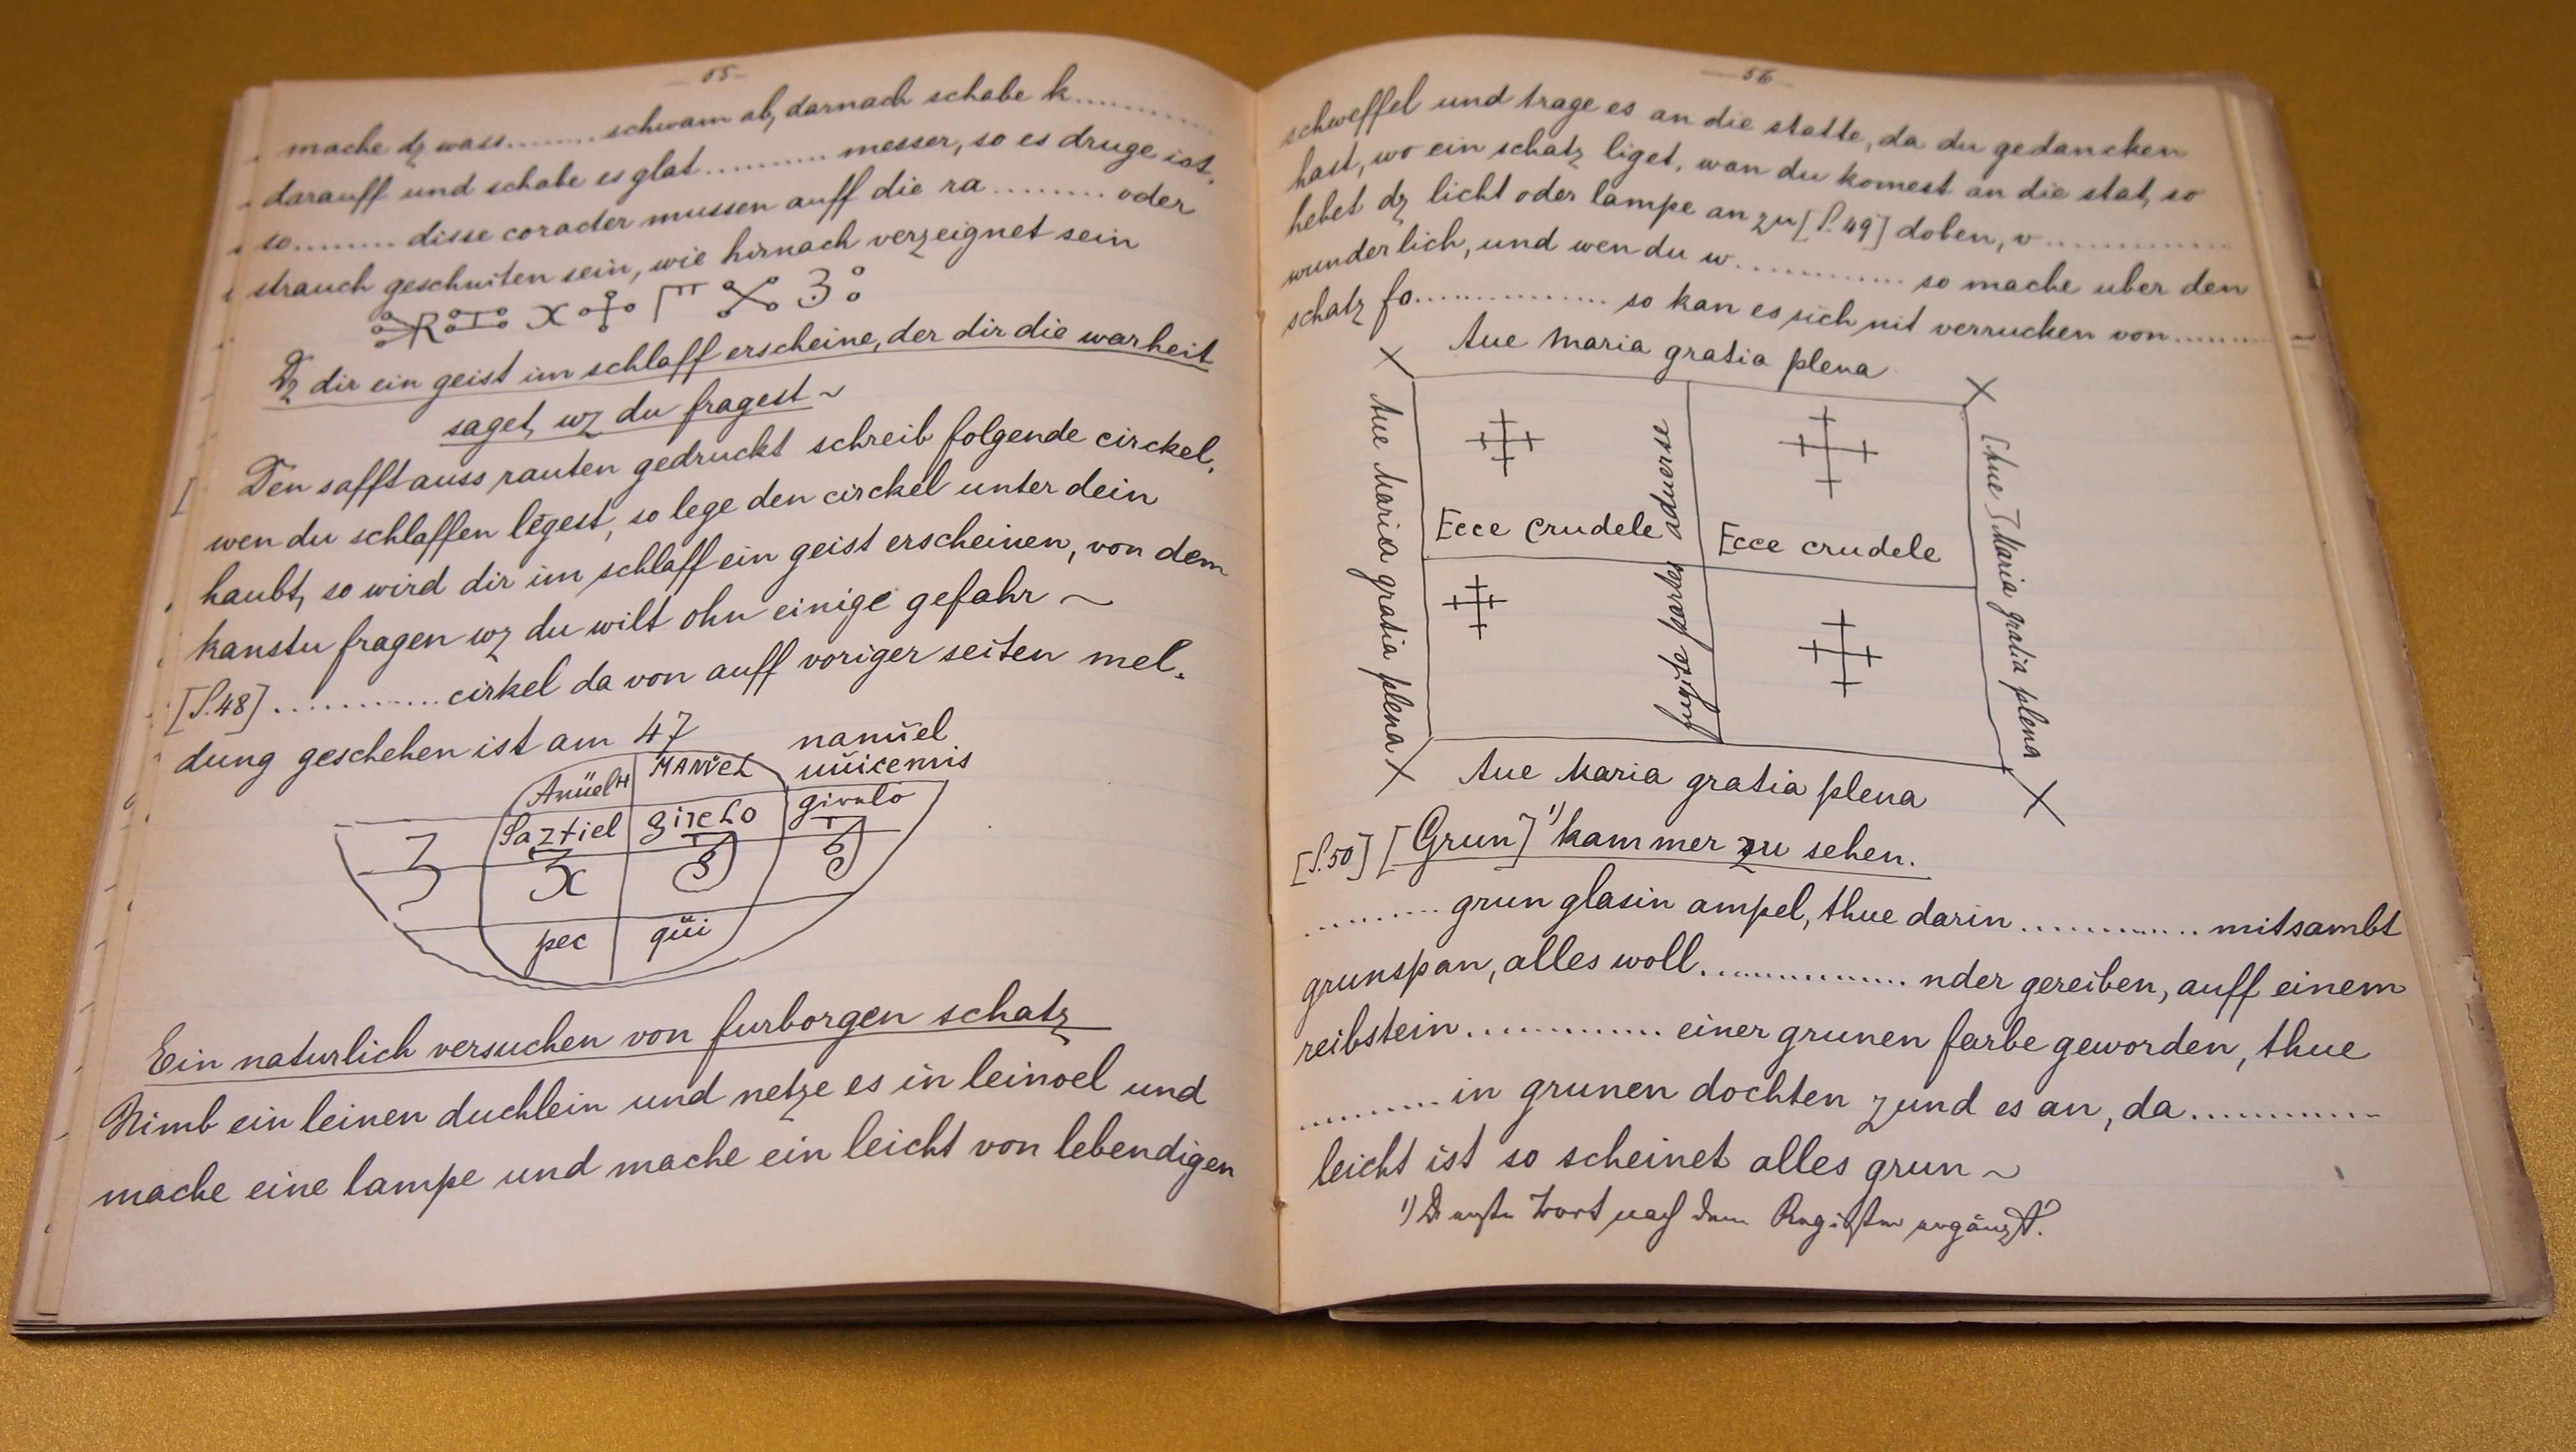 - 55 -
mache dz wass......... schwam ab, darnach schabe k.........
darauff und schabe es glat .......... messer, so es druge ist.
so.......... disse coracter mussen auff die ra ......... oder
strauch geschniten sein, wie hirnach verzeignet sein
Dz dir ein geist im schlaff erscheine, der dir die warheit
saget, wz du fragest ~
Den safft auss rauten gedruckt schreib folgende circkel,
wen du schlaffen legest, so lege den circkel unter dein
haubt, so wird dir im schlaff ein geist erscheinen, von dem
kanstu fragen wz du wilt ohn einige gefahr ~
[S.48] ............ cirkel da von auff voriger seiten mel-
dung geschehen ist am 47
Anüel MANŬEL nanŭel
uŭicemis
Saztiel
pec qŭi
Ein naturlich versuchen von furborgen schatz
Nimb ein leinen duchlein und netze es in leinoel und
mache eine lampe und mache ein leicht von lebendigen
- 56 -
schweffel und trage es an die statte, da du gedancken
hast, wo ein schatz liget, wan du komest an die stat, so
hebet dz licht oder lampe an zu [S.49] doben, v............
wunderlich, und wen du w............. so mache uber den
schatz fo............... so kan es sich nit verrucken von.........
Aue Maria gratia plena
Aue Maria gratia plena
Ecce crudele
fugite partes aduerse
Ecce crudele
[Aue] Maria gratia plena
Aue Maria gratia plena
[S.50] [Grun] 1) kammer zu sehen.
.......... grun glasin ampel, thue darin ............. mitsambt
grunspan, alles woll................ nder gereiben, auff einem
reibstein............... einer grunen farbe geworden, thue
.......... in grunen dochten zund es an, da.............
leicht ist so scheinet alles grun ~
1) Das erste Wort nach dem Register ergänzt.